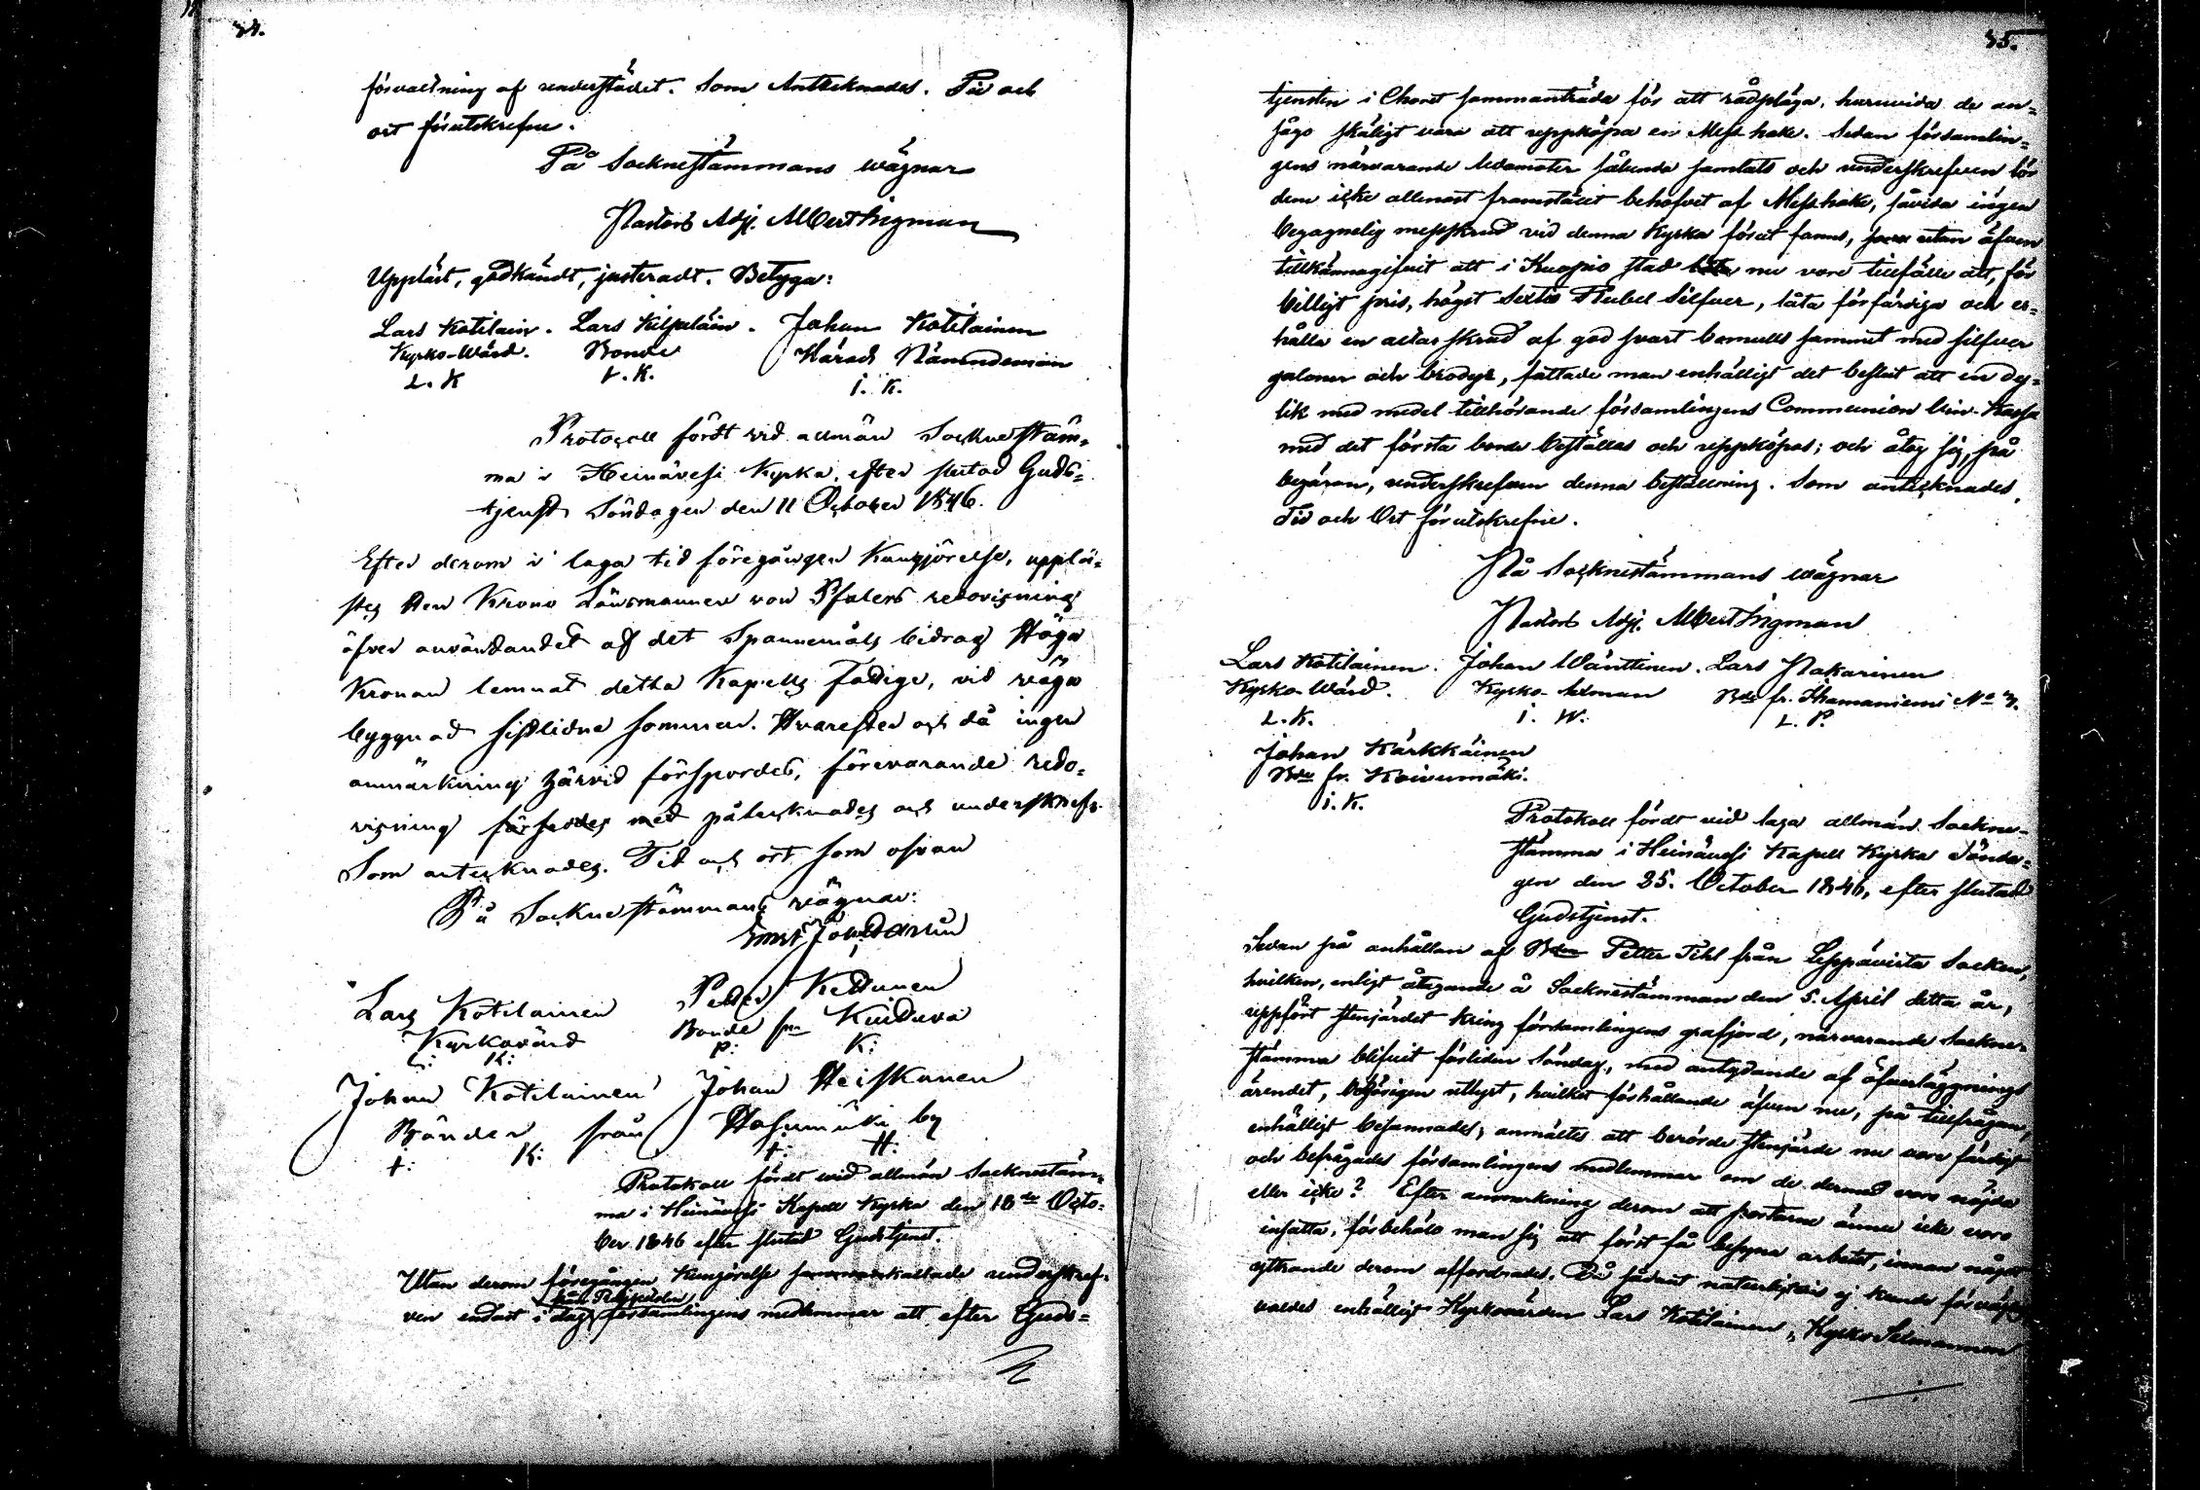 34.
förvaltning af understödet. Som Antecknades. Tid och
ort förutskrefne.
På Sockneståmmans wägnar
Pastors Adj. Albert Ingman
Uppläst, godkändt, justeradt. Betyga:
Lars Kotilain. Lars Kilpeläin. Johan Kotilainen
Kyrko-Wärd. Bonde Härads Nämndeman
L. K. L. K. i. K.
Protocoll fördt vid allmän Socknestäm-
ma i Heinävesi Kyrka efter slutad Guds-
tjenst Söndagen den 11 October 1846.
Efter derom i laga tid föregången Kungörelse, upplä-
stes den Krono Länsmannen von Pfalers redovisning
öfver användandet af det Spannemåls bidrag Höga
Kronan lemnat detta Kapells Fattige, vid väga
byggnad sistlidne sommar. Hvarefter och då ingen
anmärkning härvid förspordes, förevarande redo-
visning försedes med påtecknades och underskrefs.
Som antecknades. Tid och ort som ofvan
På Sockne stämmans vägnar:
Lars Kotilainen Petter Kettunen
Kyrkovärd Bonde från
L: K: P: K:
Johan Kotilainen Johan Heiskanen
Bönder från by
I: K: I: H:
Protokoll fördt wid allmän Socknestäm-
ma i Heinävesi Kapell Kyrka den 18de Octo-
ber 1846 efter slutad Gudstjenst.
Utan derom föregången Kungörelse kallade underskref-
från Predikstolen
ven endast i dag församlingens medlemmar att efter Guds-
35.
tjensten i Choret sammanträda för att rådpläga, huruvida de an-
sågo skäligt vara att uppköpa en Mess hake. Sedan församlin-
gens närvarande ledamöter sålunda samlats och underskrefven för
dem icke allenast framstält behofvet af Messhake, såvida ingen
begagnelig messkrud vid denna Kyrka förut fanns, utan äfven
tillkännagifvit att i Kuopio stad nu vore tillfälle att, för
billigt pris, högst Sextio Rubel Silfver, låta förfärdiga och er-
hålla en altar skrud af god svart bomulls sammet med silfver
galoner och brodyr, fattade man enhälligt det beslut att en dy-
lik med medel tillhörande församlingens Communion Vin-Kassa
med det första borde beställas och uppköpas; och åtog sig, på
begäran, underskrefven denna beställning. Som antecknades,
Tid och Ort förutskrefne.
På Socknestämmans wägnar
Pastors Adj. Albert Ingman
Lars Kotilainen. Johan Wänttinen. Lars Pakarinen
Kyrko-Wärd. Kyrko-Sexman Bde fr. Ihamaniemi No 3.
L. K. i. W. L. P.
Johan Kärkkäinen
Bde fr. Koivumäki.
i. K.
Protokoll fördt vid laga allmän Sockne-
stämma i Heinävesi Kapell Kyrka Sönda-
gen den 25. October 1846, efter slutad
Gudstjenst.
Sedan på anhållan af Petter Tihl från Leppävirta Socken,
hvilken, enligt åtagande å Socknestämman den 5. April detta år,
uppfört stengärdet kring församlingens grafjord, närvarande Sockne-
stämma blifvit förliden Söndag, med antydande af öfverläggnings
ärendet, behörigen utlyst, hvilket förhållande äfven nu, på tillfrågan,
enhälligt besannades; anmältes att berörde stengärde nu vore färdigt
och befrågades församlingens medlemmar om de dermed voro nöjda
eller icke? Efter anmerkning derom att portarne ännu icke voro
insatta, förbehöll man sig att först få besyna arbetet, innan något
yttrande derom affordrades. Då sådant naturligtvis ej kunde förvägras,
valdes enhälligt Kyrkovärden Lars Kotilainen, Kyrko Sexmannen